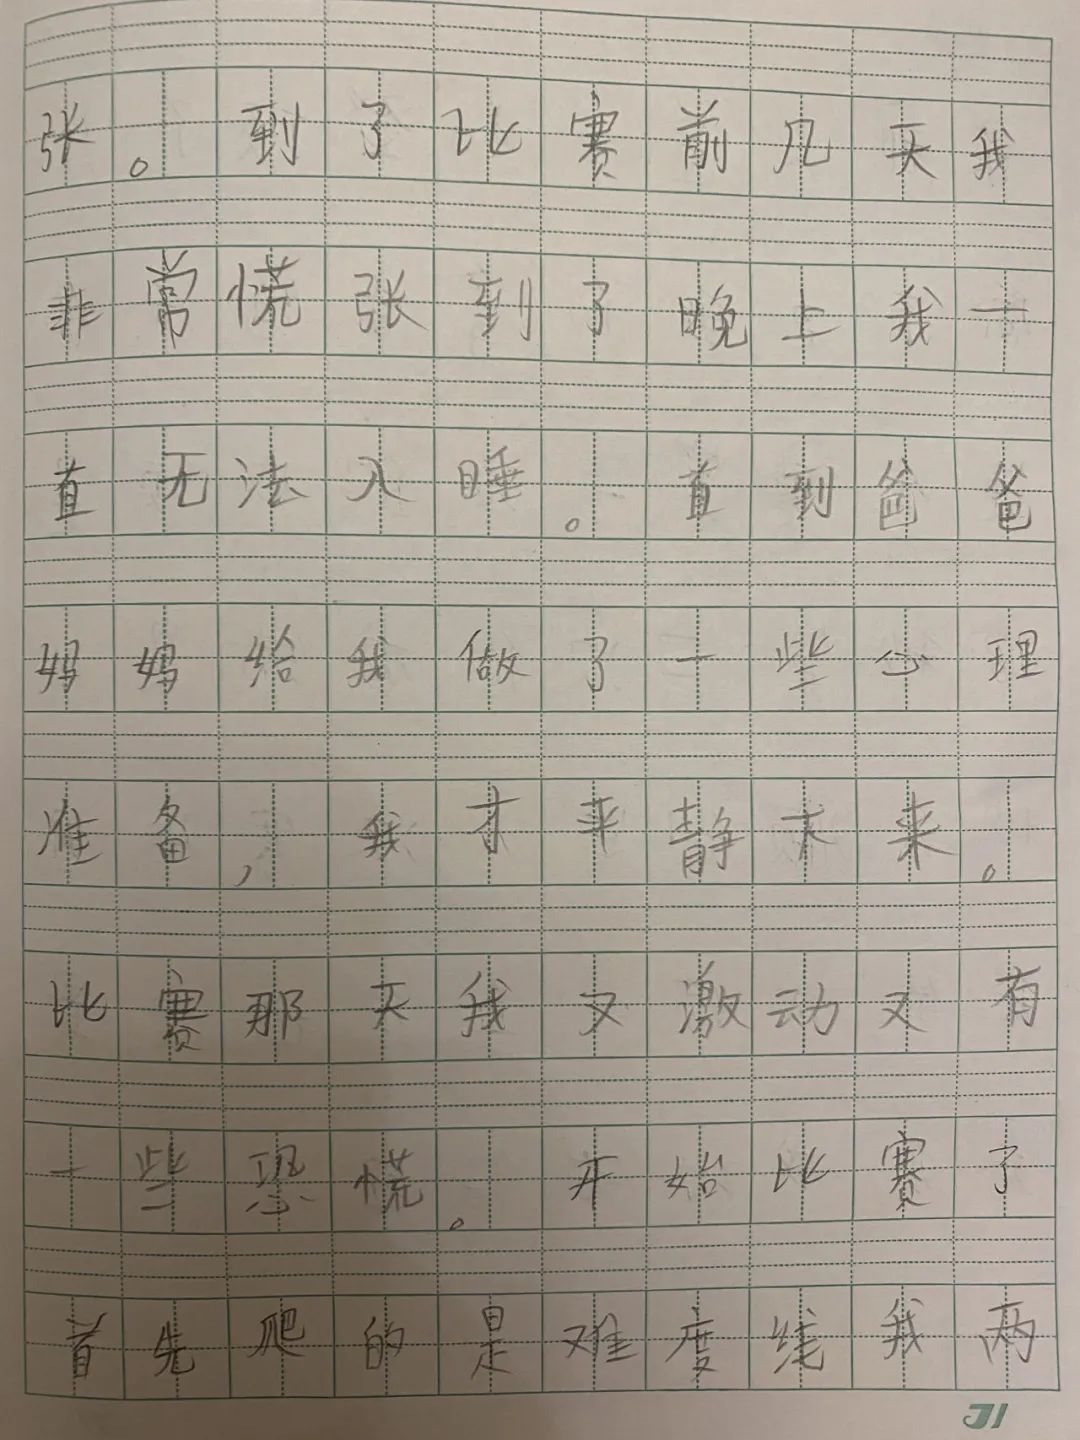 张。到了比赛前几天我
非常慌张到了晚上我一
直无法入睡。直到爸爸
妈妈给我做了一些心理
准备，我才平静下来。
比赛那天我又激动又有
一些恐慌。开始比赛了
首先爬的是难度线我两